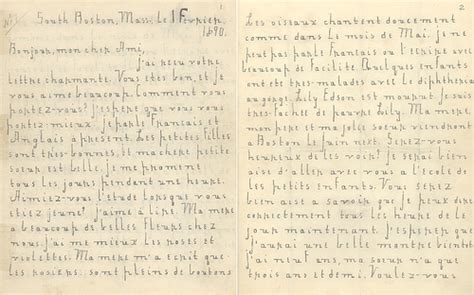 1
South Boston, Mass. le 1 Février.
1890.
Bonjour, mon cher Ami,
j'ai reçu votre
lettre charmante. Vous êtes bon, et je
vous aime beaucoup. Comment vous
portez-vous? J'espère que vous vous
portez mieux. Je parle Français et
Anglais à présent. Les petites filles
sont très-bonnes, et ma chère petite
sœur est belle. Je me promène
tous les jours pendant une heure.
Aimiez-vous l'étude lorsque vous
étiez jeune? J'aime à lire. Ma mère
a beaucoup de belles fleurs chez
nous. J'ai me mieux les roses et
violettes. Ma mère m'a écrit que
les rosiers sont pleins de boutons
2
Les oiseaux chantent doucement
comme dans le mois de Mai. Je ne
peut pas parle Français ou l'écrire avec
beaucoup de facilité. Quelques enfants
ont été très-malades avec le diphthéria
au gorge. Lily Edson est mourut. Je suis
très-fachée de pauvre Lily. Ma mère,
mon père et ma jolie sœur viendront
à Boston le Juin next. Serez-vous
heureux de les voir? Je serai bien
aise d'aller avec vous à l'école de
les petits enfants. Vous serez
bien aise à savoir que je peux dire
correctement tous les heures de le
jour maintenant. J'espère que
j'aurai une belle montre bientôt
j'ai neuf ans, ma sœur n'a que
trois ans et demi. Voulez-vous